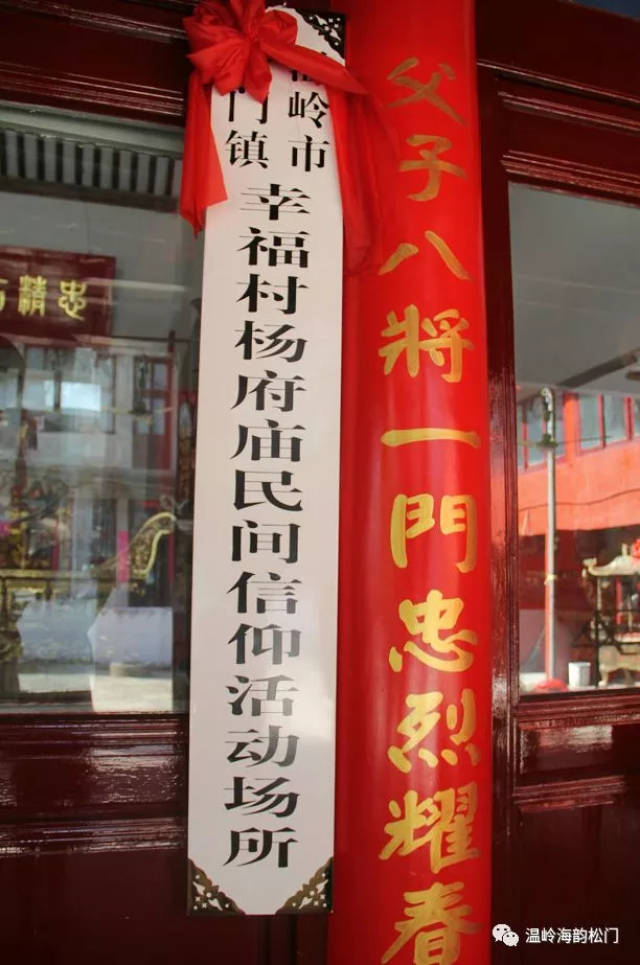 岭市
门镇
幸福村杨府庙民间信仰活动场所
父子八將一門忠烈耀春
忠精
温岭海韵松门